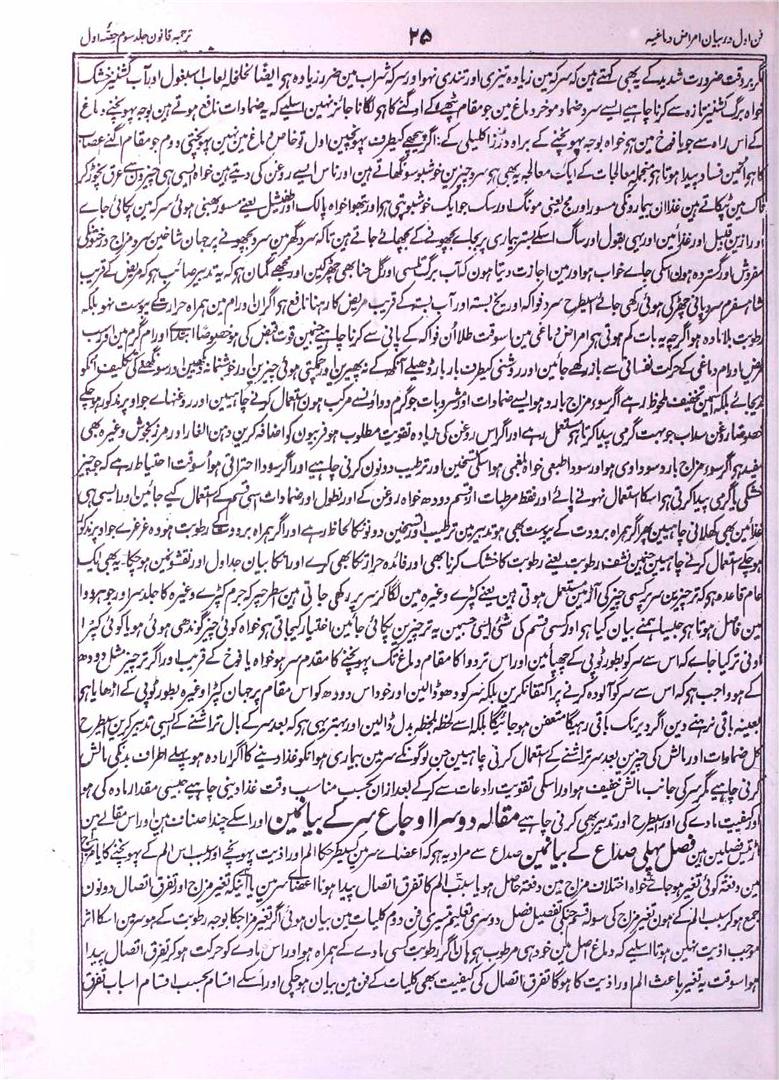 فن اول در بیان امراض دماغیہ ۲۵ ترجمہ قانون جلد سوم حصہ اول
مگر بر وقت ضرورت شدید کے یہی کہتے ہین کہ سرکہ مین زیادہ تیزی اور تندی نہو اور سرکہ شراب مین ضرر زیادہ ہو ایضاً لعاب اسبغول اور آب کشنیز خشک
خواہ برگ کشنیز تازہ سے کرنا چاہیے ایسے سرد ضماد موخر دماغ مین جو مقام پٹھے کے اوگنے کا ہو لگانا جائز نہین اسلیے کہ یہ ضمادات نافع ہوتے ہین بوجہ پہونچنے دماغ
کے اس راہ سے جو یافوخ مین ہو خواہ بوجہ پہونچنے کے براہ درز اکلیلی کے اگر پیچھے کیطرف پہونچین اول تو خاص دماغ مین نہین پہونچتی دوم جو مقام اگنے اعصاب
کا ہو اسمین فساد پیدا ہوتا ہو منجملہ معالجات کے ایک معالجہ یہ بھی ہو سرد چیزین خوشبو سونگھاتے ہین اور ناس ایسے روغن کی دیتے ہین خواہ ایسی ہی چیزون سے عرق نچوڑ کر
ناک مین ٹپکاتے ہین غذا ان بیمارونکی مسور اور مج یعنی مونگ اور سک جو ایک خوشبو ہوتی ہو اور بتھوا خواہ پالک اور طفیشل یعنے مسور بھنی ہوئی سرکہ مین پکائی جاے
اور ازین قبیل اور غذائین اور یہی بقول اور ساگ اسکے بستر بیماری پر بجاے بچھونے کے بچھائے جاتے ہین تاکہ سرد گھر مین سرد بچھونے پر جہان شاخین سرد مزاج درختونکی
مفروش اور گستردہ ہون اسکی جاے خواب ہو اور مین اجازت دیتا ہون کہ آب برگ تلسی اور گل حنا بھی چھڑکین اور مجھے گمان ہو کہ یہ تدبیر صائب ہو کہ مریض کے قریب
شاہسفرم سرد پانی چھڑکی ہوئی رکھی جائے اسیطرح سرد فواکہ اور یخ بستہ اور آب بستہ کے قریب مریض کا رہنا نافع ہو اگر ان اورام مین ہمراہ حرارت کے یبوست نہو بلکہ
رطوبت یا مادہ ہو اگرچہ یہ بات کم ہوتی ہو امراض دماغی مین اسوقت طلا ان فواکہ کے پانی سے کرنا چاہیے جنمین قوت قبض کی ہو خصوصاً ابتدائے اورام گرم مین اور سب
مرض اورام دماغی کے حرکت نفسانی سے باز رکھے جائین اور روشنی کیطرف بار بار ڈھیلے آنکھ کے نہ پھیرین اور چمکتی ہوئی چیزین اور خوشنما نہ دیکھین اور سونگھنے کی تکلیف انکو
دیجائے بلکہ اسمین تخفیف ملحوظ رہے اگر سوء مزاج بارد ہو ایسے ضمادات اور مشروبات جو گرم دواؤنسے مرکب ہون استعمال کرنے چاہیین اور روغنہاے جو اوپر مذکور ہو چکے
خصوصاً روغن سداب جو بہت گرمی پیدا کرتا ہو مستعمل رہے اور اگر اس روغن کی زیادہ تقویت مطلوب ہو فربیون کو اضافہ کرین دہن الغار اور مرزنجوش وغیرہ بھی
مفید ہو اگر سوء مزاج بارد سوداوی ہو اور سودا طبعی خواہ بلغمی ہو اسکی تسخین اور ترطیب دونون کرنی چاہیے اور اگر سودا احتراقی ہو اسوقت احتیاط رہے کہ جو چیز
خشکی یا گرمی پیدا کرتی ہو اسکا استعمال نہونے پائے اور فقط مرطبات از قسم دودھ خواہ روغن کے اور نطول اور ضمادات اسی قسم کے استعمال کیے جائین اور ایسی ہی
غذائین بھی کھلانی چاہیین پھر اگر ہمراہ برودت کے یبوست بھی ہو تدبیر مین ترطیب اور تسخین دونونکا لحاظ رہے اور اگر ہمراہ برودت کے رطوبت ہو وہ غرغرے جو اوپر مذکور
ہو چکے استعمال کرنے چاہیین جنمین نشف رطوبت یعنے رطوبت کا خشک کرنا بھی اور فائدہ حرارت کا بھی کرے اور انکا بیان جداول اور نقشونمین ہو چکا۔ یہ بھی ایک
عام قاعدہ ہو کہ تر چیزین سر پر کسی چیز کی آڑ مین مستعمل ہوتی ہین یعنے کپڑے وغیرہ مین لگا کر سر پر رکھی جاتی ہین اسطرح پر کہ جرم کپڑے وغیرہ کا جلد سر اور جوہر دوا
مین فاصل ہوتا ہو جیسا ہمنے بیان کیا ہو اور کسی قسم کی شی ایسی جسمین یہ تر چیزین پکائی جائین اختیار کیجاتی ہو خواہ کوئی چیز گوندھی ہوئی ہو یا کوئی کپڑا
اونی تر کیا جاے کہ اس سے سر کو بطور ٹوپی کے چھپائین اور اس تر دوا کا مقام دماغ تک پہونچنے کا مقدم سر ہو خواہ یافوخ کے قریب اور اگر تر چیز مثل دودھ
کے ہو واجب ہو کہ اس سے سر کو آلودہ کرنے پر اکتفا نکرین بلکہ سر کو دھو ڈالین اور خود اس دودھ کو اس مقام پر جہان کپڑا وغیرہ بطور ٹوپی کے اڑھایا ہو
بعینہ باقی نرہنے دین اگر دیر تک باقی رہیگا متعفن ہو جائیگا بلکہ اسے لحظہ بلحظہ بدل ڈالین اور بہتر یہی ہو کہ بعد سر کے بال تراشنے کے ایسی تدبیر کرین اسیطرح
کل ضمادات اور مالش کی چیزین بعد سر تراشنے کے استعمال کرنی چاہیین جن لوگونکے سر مین بیماری ہو انکو غذا دینے کا اگر ارادہ ہو پہلے اطراف بدنکی مالش
کرنی چاہیے مگر سر کی جانب مالش خفیف ہو اور اسکی تقویت رادعات سے کر کے بعد ازان بحسب مناسب وقت غذا دینی چاہیے جیسی مقدار مادہ کی ہو
اور کیفیت مادے کی اور اسیطرح اور تدبیر بھی کرنی چاہیے مقالہ دوسرا اوجاع سر کے بیانمین اور اسکے چند اصناف ہین اور اس مقالے مین
فصلین ہین فصل پہلی صداع کے بیانمین صداع سے مراد یہ ہو کہ اعضاے سر مین کسیطرحکا الم اور اذیت پہونچے اور سبب اس الم کے پہونچنے کا یا مزاج
مین دفعۃً کوئی تغیر ہو جائے خواہ اختلاف مزاج مین دفعۃً حاصل ہو یا سبب الم کا تفرق اتصال پیدا ہونا اعضاے سر مین یا آنکہ تغیر مزاج اور تفرق اتصال دونون
جمع ہو کر سبب الم کے ہون تغیر مزاج کی سولہ قسم جنکی تفصیل فصل دوسری تعلیم تیسری فن دوم کلیات مین بیان ہوئی اگر تغیر مزاجکا بوجہ رطوبت کے ہو سر مین اسکا اثر
موجب اذیت نہین ہوتا اسلیے کہ دماغ اصل مین خود ہی مرطوب ہو ہان اگر رطوبت کسی مادے کے ہمراہ ہو اور اس مادے کو حرکت ہو کہ تفرق اتصال پیدا
ہو اسوقت یہ تغیر باعث الم اور اذیت کا ہوگا تفرق اتصال کی کیفیت بھی کلیات کے فن مین بیان ہو چکی اور اسکے اقسام بحسب اقسام اسباب تفرق